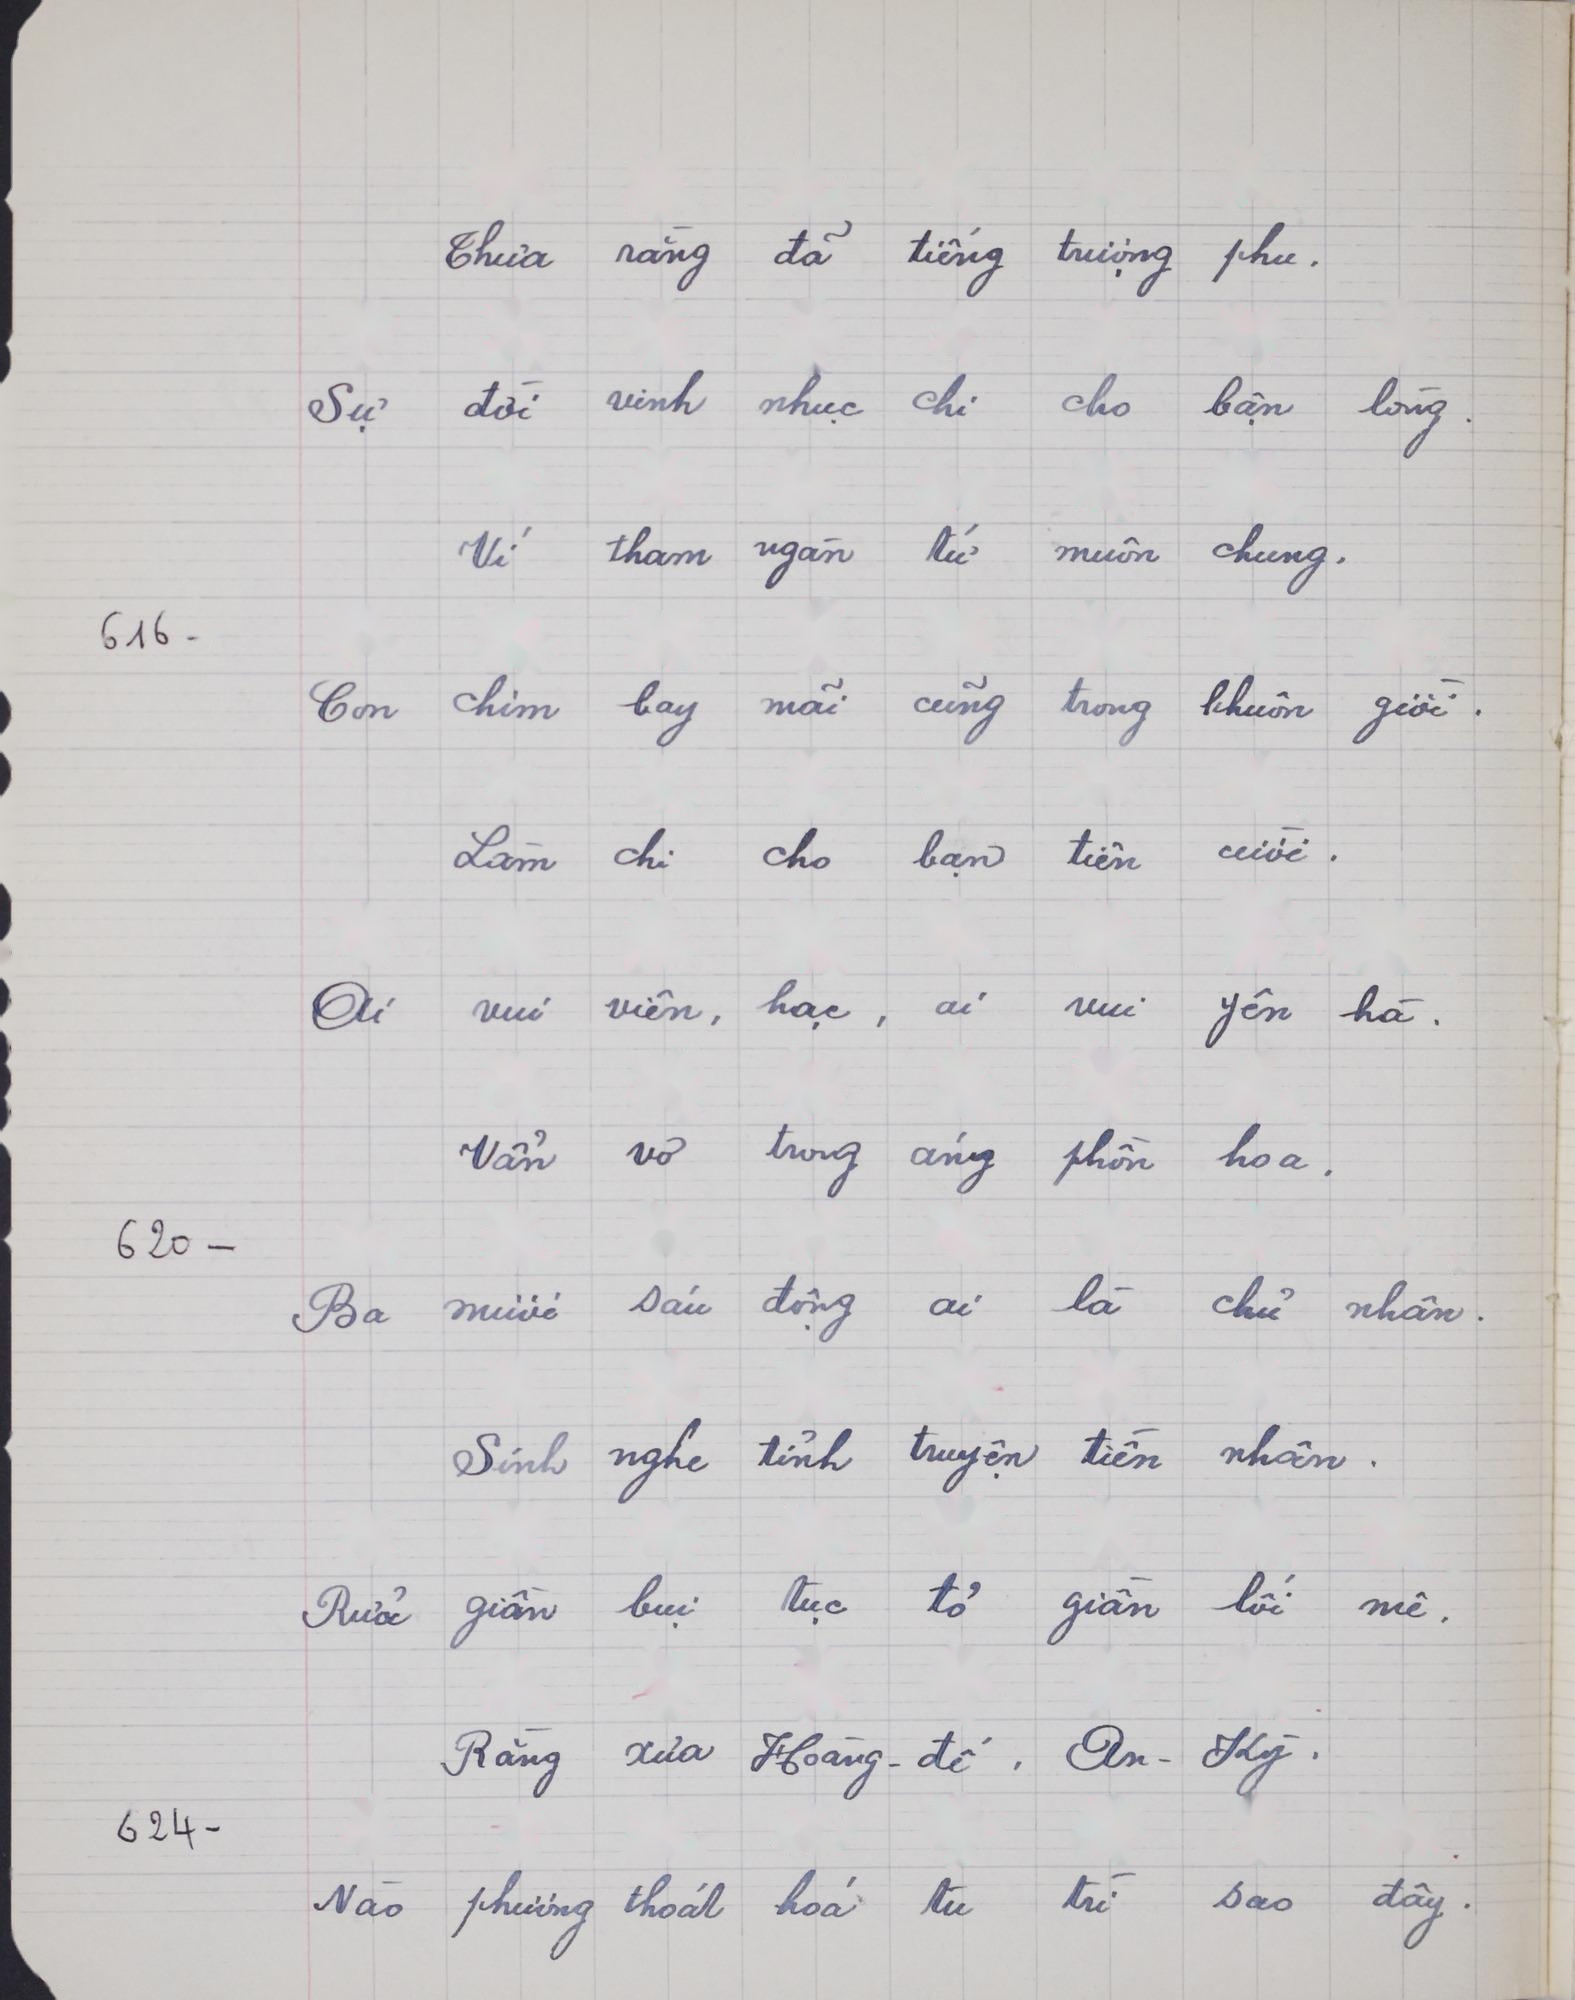 Thưa rằng đã tiếng trượng phu.
Sự đời vinh nhục chi cho bận lòng.
Ví tham ngàn tứ muôn chung.
616-
Con chim bay mãi cũng trong khuôn giời.
Làm chi cho bạn tiên cười.
Ai vui viên, hạc, ai vui yên hà.
Vẩn vơ trong áng phồn hoa.
620-
Ba mươi sáu động ai là chủ nhân.
Sinh nghe tỉnh truyện tiền nhân.
Rửa giần bụi tục tỏ giần lối mê.
Rằng xưa Hoàng-đế, An-Kỳ.
624-
Nào phương thoát hoá tu trì sao đây.